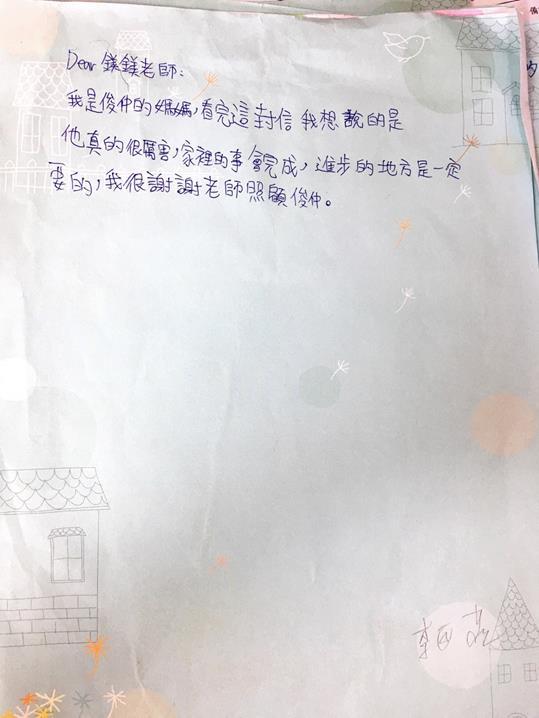 Dear 鎂鎂老師:
我是俊仲的媽媽,看完這封信 我想說的是
他真的很厲害,家裡的事會完成,進步的地方是一定
要的,我很謝謝老師照顧俊仲。